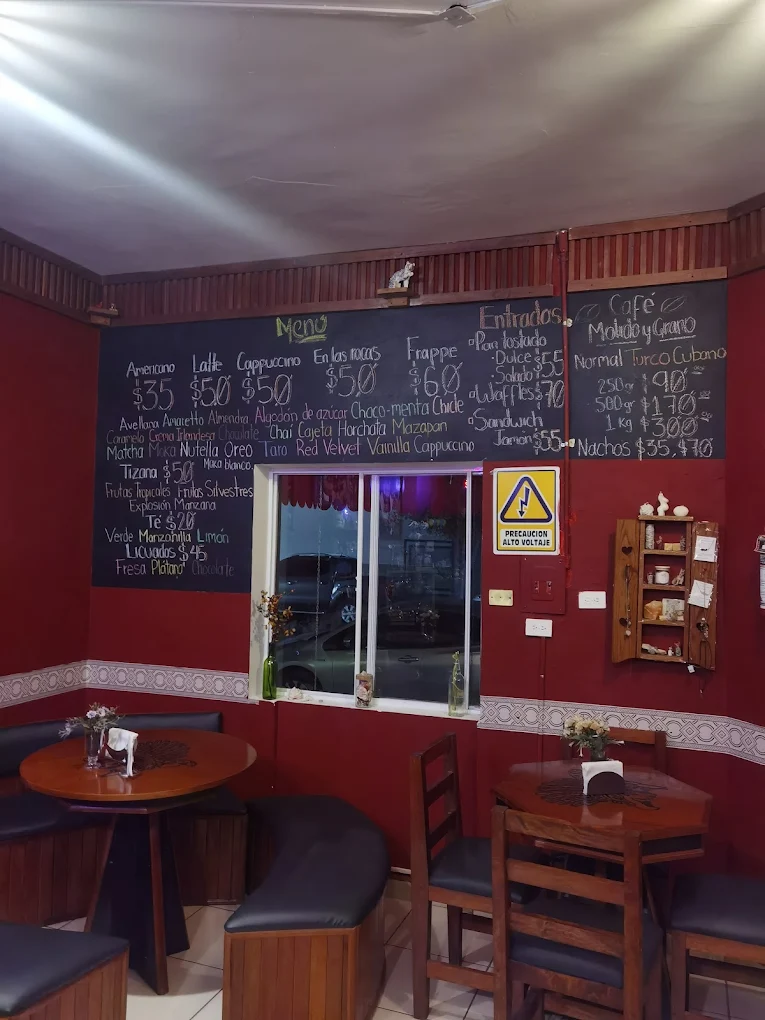 Menú
Americano Latte Cappuccino En las rocas Frappe
$35 $50 $50 $50 $60
Avellana Amaretto Almendra Algodón de azúcar Choco-menta Chicle
Caramelo Crema Irlandesa Chocolate Chai Cajeta Horchata Mazapan
Matcha Moka Nutella Oreo Taro Red Velvet Vainilla Cappuccino
Moka blanco
Tizana $50
Frutas Tropicales Frutas Silvestres
Explosión Manzana
Té $20
Verde Manzanilla Limón
Licuados $45
Fresa Plátano Chocolate
Entradas
Pan tostado
Dulce $55
Salado
Waffles $70
Sandwich
Jamon $55
Café
Molido y Grano
Normal Turco Cubano
250gr $90
500gr $170
1 kg $300
Nachos $35, $70
PRECAUCION
ALTO VOLTAJE